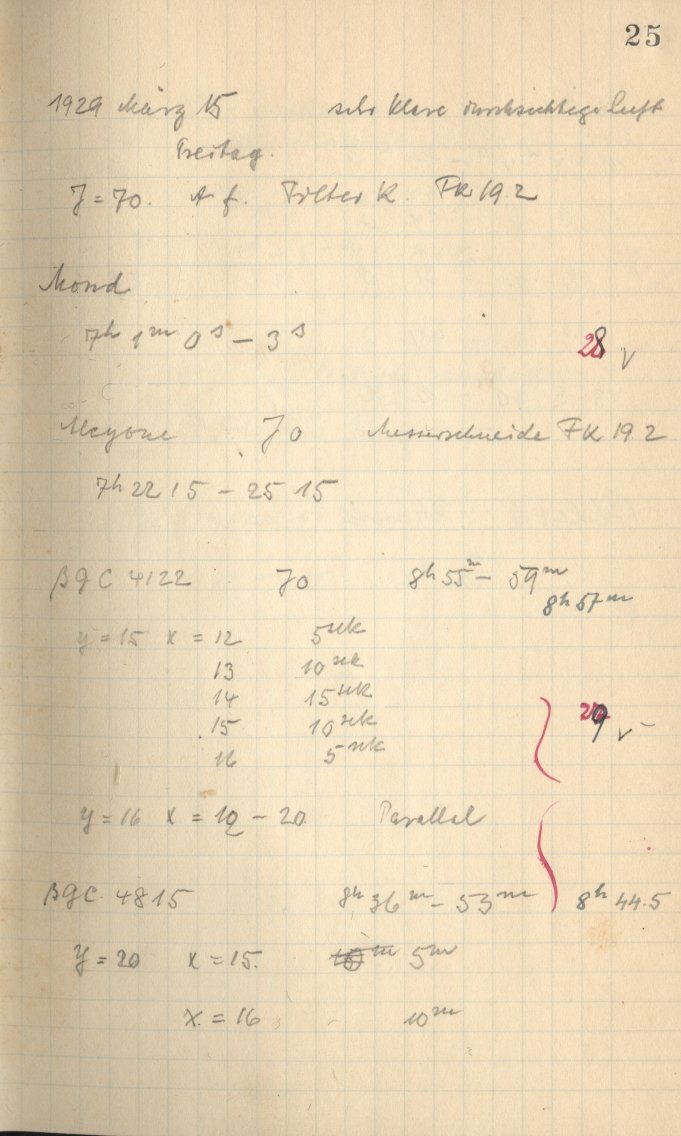 25
1929 März 15 sehr klare durchsichtige Luft
Freitag.
J = 70. A f. Filter K. FK 19.2
Mond
7h 1m 0s – 3s 28 √
Alcyone J0 Messerschneide FK 19.2
7h 22 15 – 25 15
βGC 4122 J0 8h 55m – 59m
8h 57m
y = 15 x = 12 5sek
13 10sek
14 15sek
15 10sek 29 √
16 5sek
y = 16 x = 10 – 20 Parallel
βGC. 4815 8h 36m – 53m 8h 44.5
y = 20 x = 15. 5m
x = 16 10m